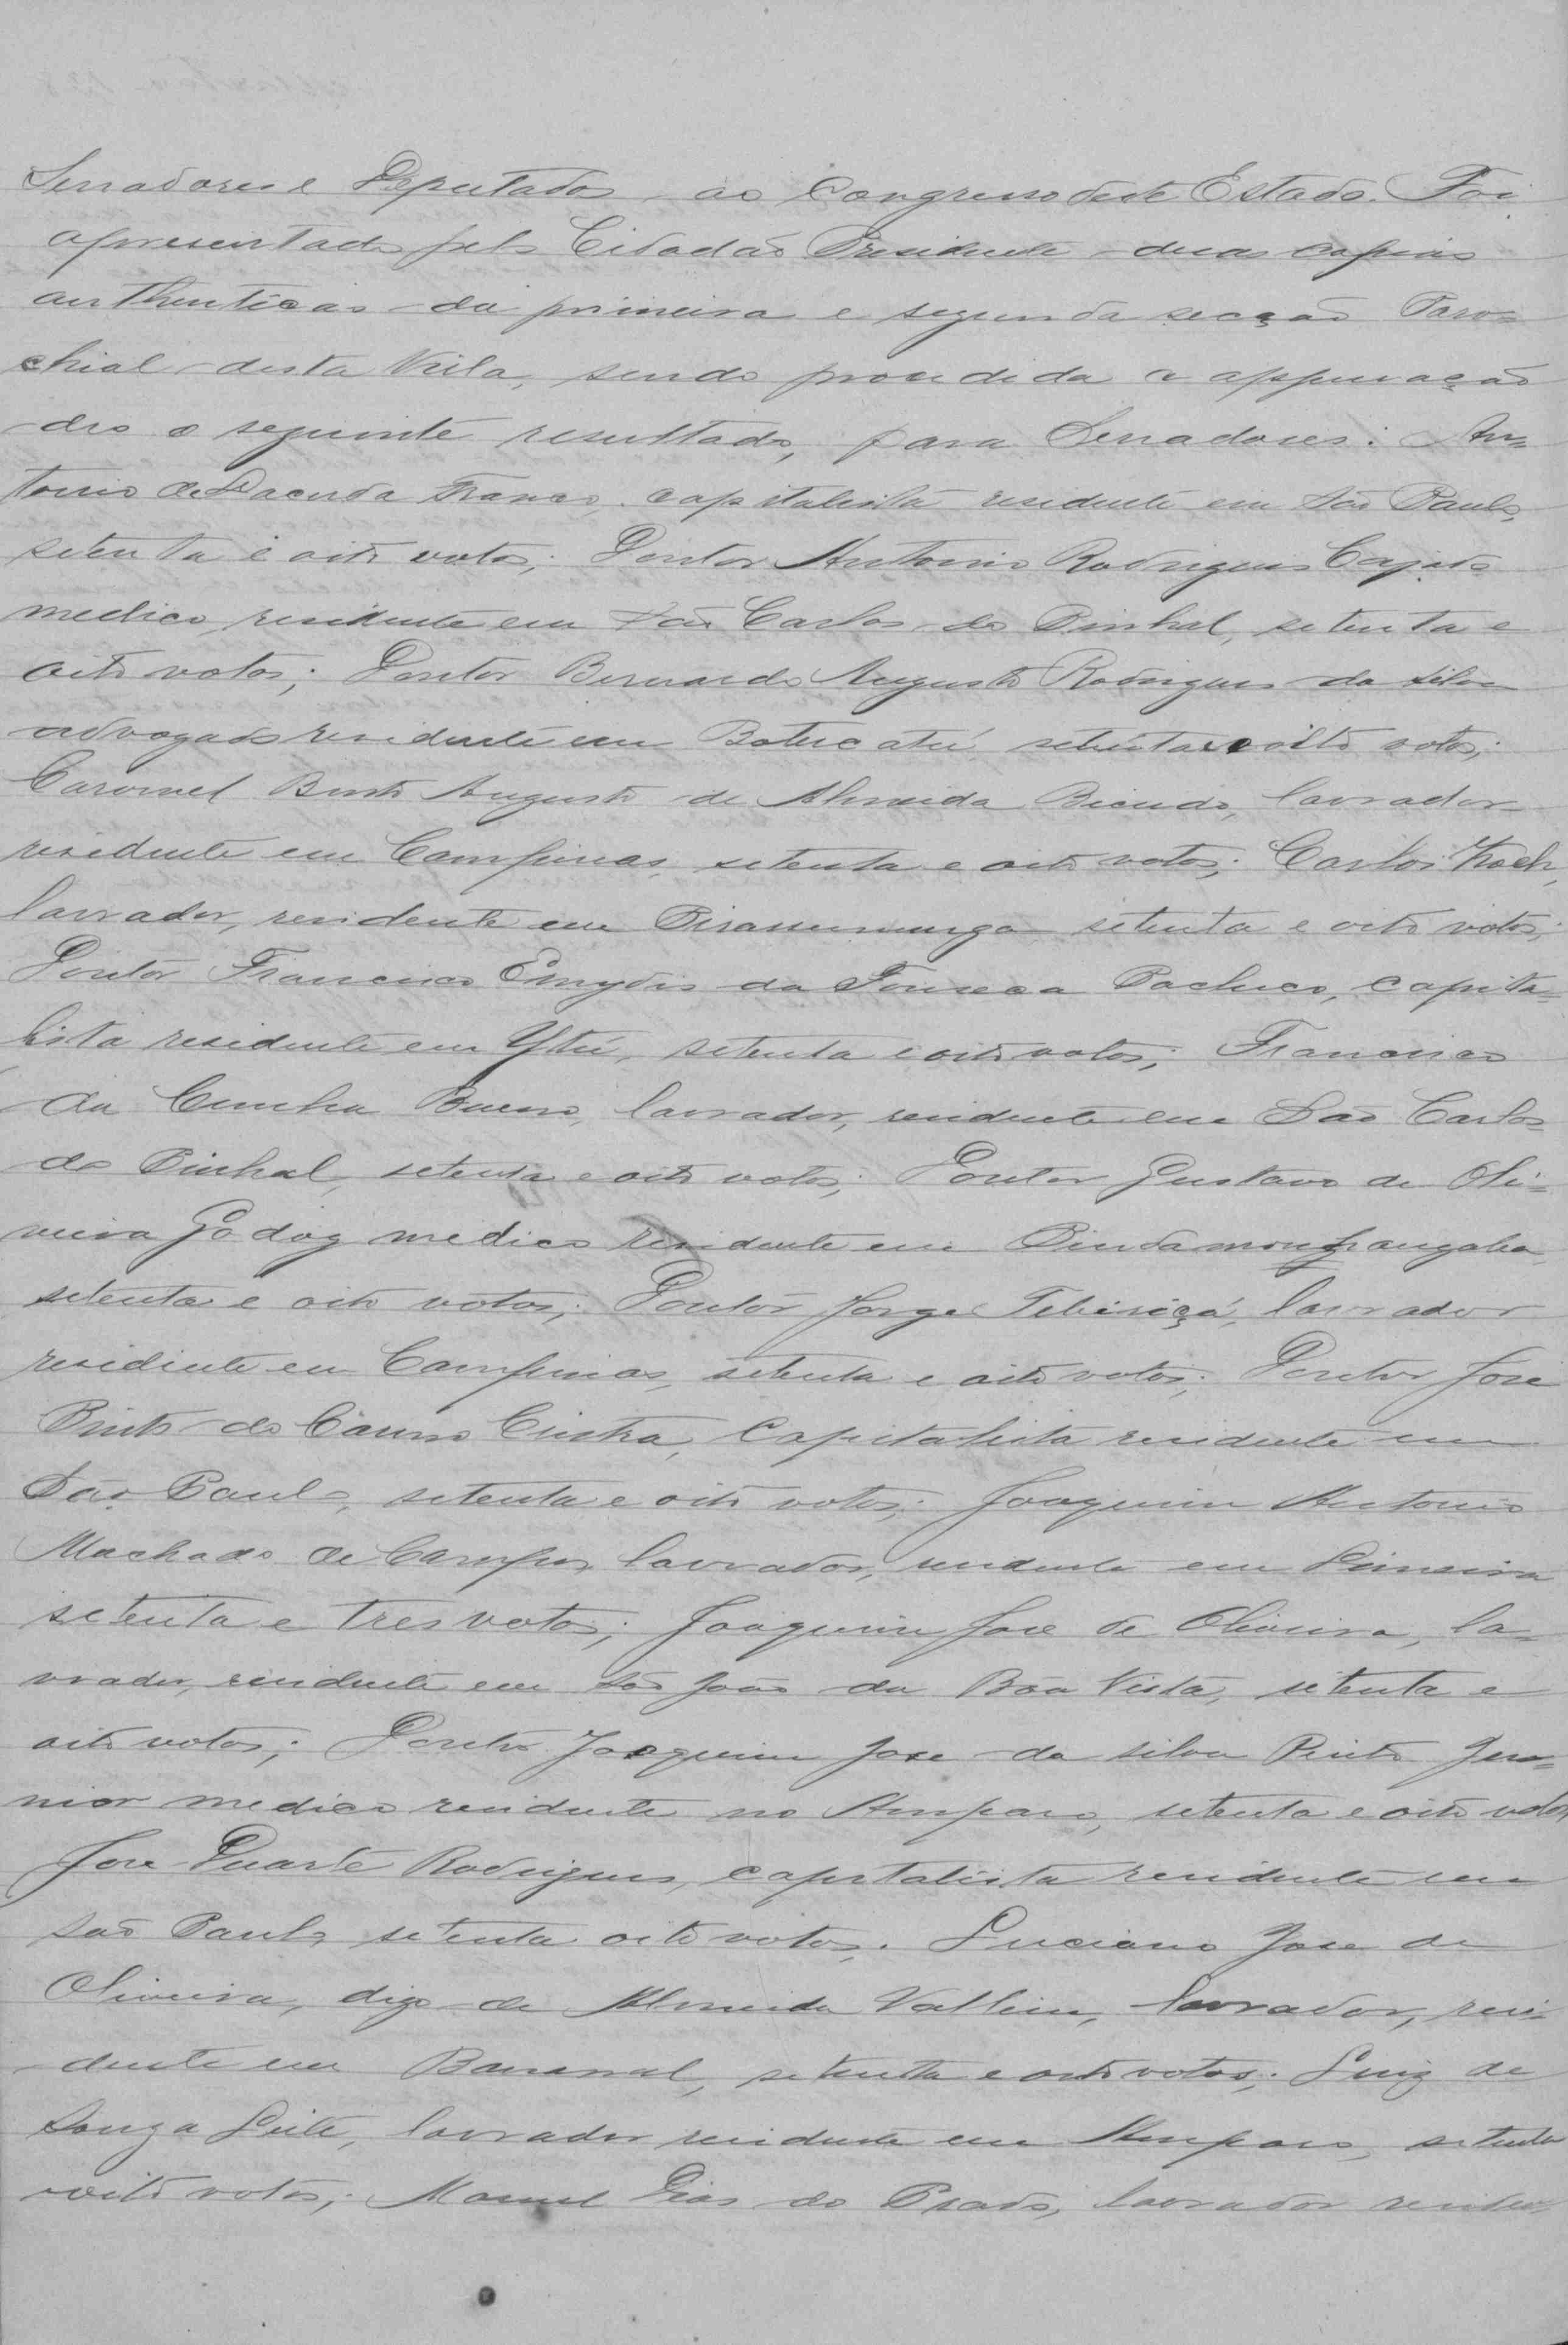 Senadores e Deputados ao Congresso deste Estado. Foi
apresentado pelo Cidadão Presidente duas copias
authenticas da primeira e segunda secção Paro=
chial desta Villa, sendo procedida a appuração
deo o seguinte resultado, para Senadores: An=
tonio de Lacerda Franco, capitalista residente em São Paulo,
setenta e oito votos; Doutor Antonio Rodrigues Cajado
medico, residente em São Carlos do Pinhal, setenta e
oito votos; Doutor Bernardo Augusto Rodrigues da Silva
advogado residente em Botucatú setenta e oito votos;
Coronel Bento Augusto de Almeida Bicudo, lavrador
residente em Campinas, setenta e oito votos; Carlos Koch,
lavrador, residente em Pirassununga setenta e oito votos;
Doutor Francisco Emydio da Fonseca Pacheco, capita=
lista residente em Ytú, setenta e oito votos; Francisco
da Cunha Bueno, lavrador, residente em São Carlos
do Pinhal, setenta e oito votos; Doutor Gustavo de Oli=
veira Godoy medico residente em Pindamonhangaba
setenta e oito votos; Doutor Jorge Tibiriçá, lavrador
residente em Campinas, setenta e oito votos; Doutor José
Pinto do Carmo Cintra, Capitalista residente em
São Paulo, setenta e oito votos; Joaquim Antonio
Machado de Campos, lavrador, residente em Limeira
setenta e tres votos; Joaquim José de Oliveira, la=
vrador, residente em São João da Bôa Vista, setenta e
oito votos; Doutor Joaquim José da Silva Pinto Ju=
nior medico residente no Amparo, setenta e oito votos,
José Duarte Rodrigues, capitalista residente em
São Paulo, setenta oito votos. Luciano José de
Oliveira, digo de Almeida Vallim, lavrador, resi=
dente em Bananal, setenta e oito votos; Luiz de
Souza Leite, lavrador residente em Amparo, setenta
e oito votos; Manuel Dias do Prado, lavrador residen=